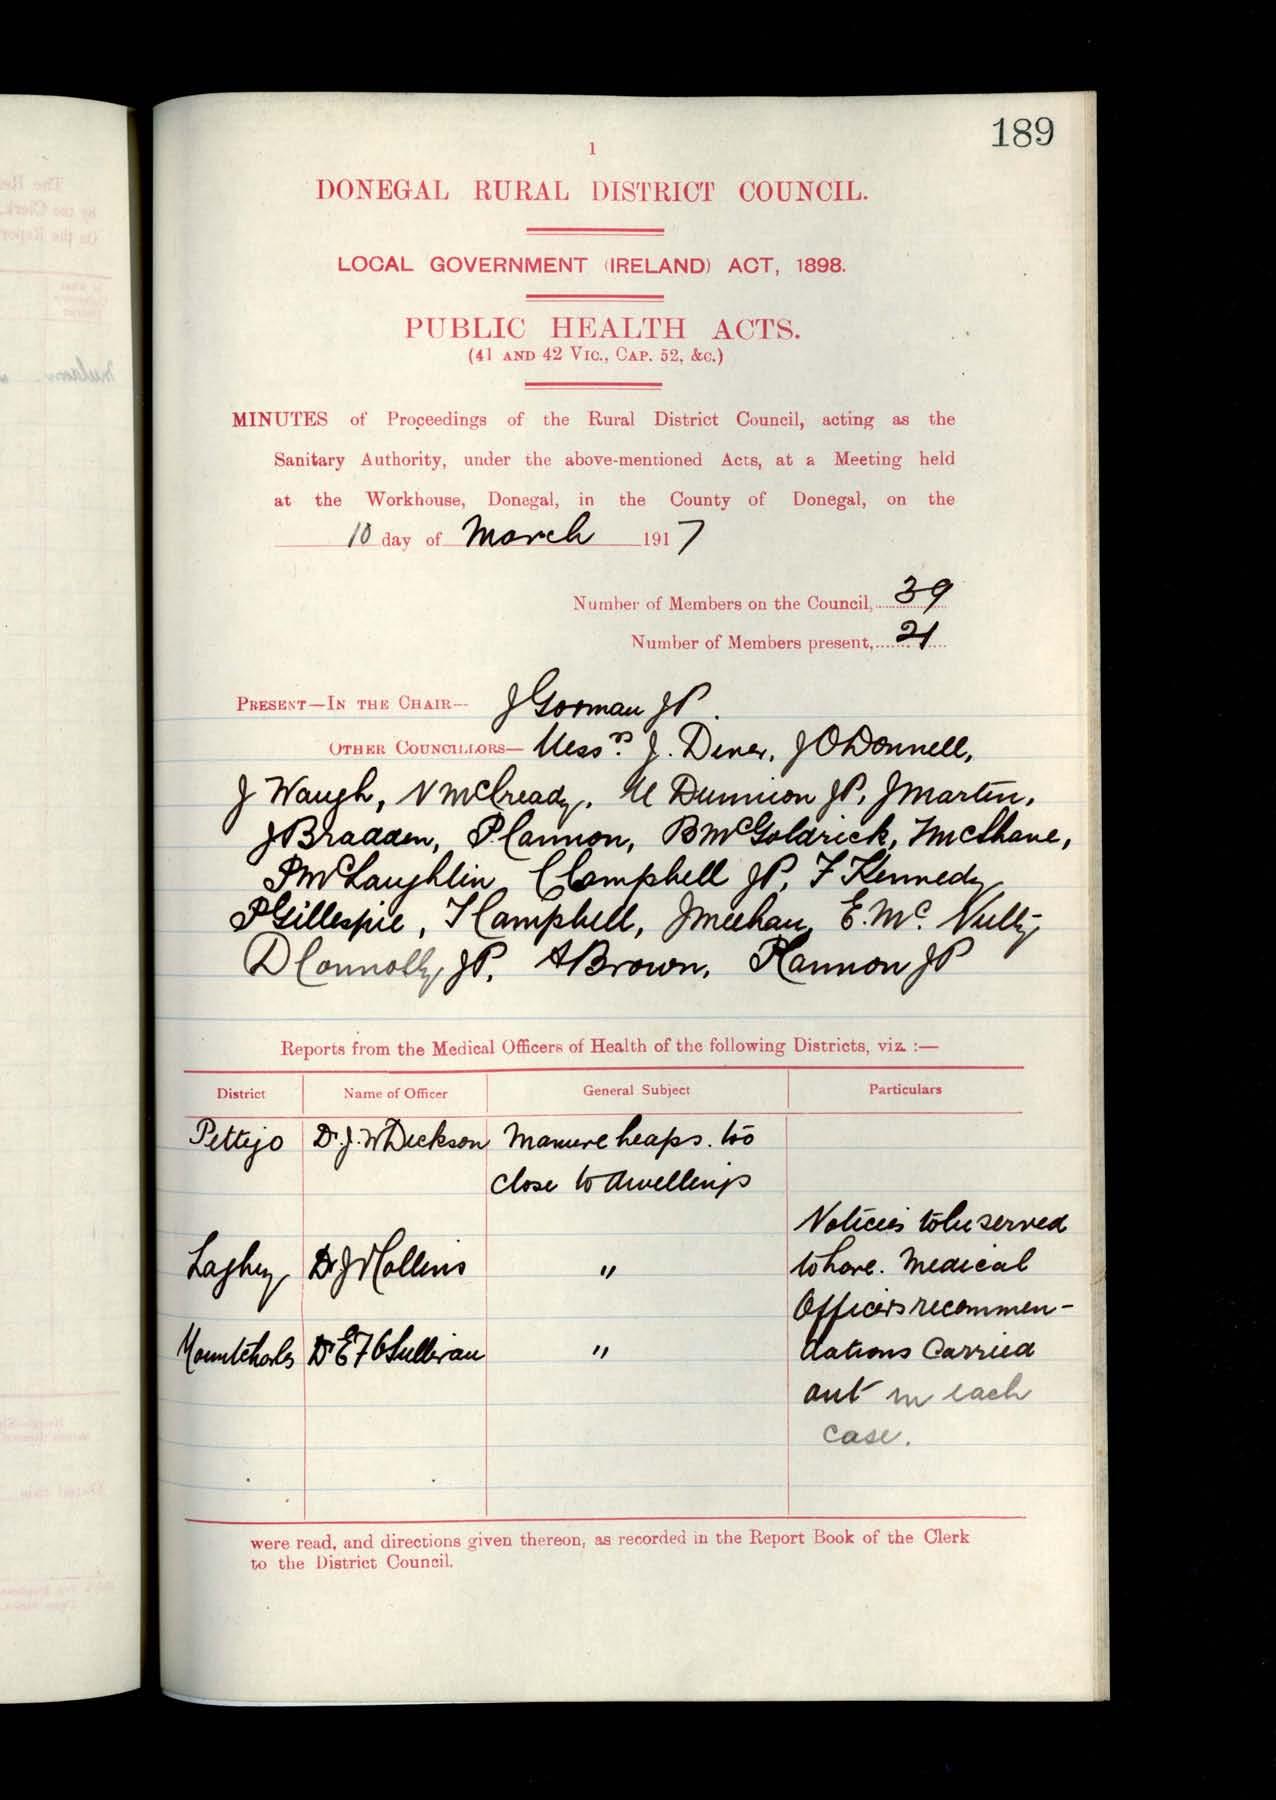 189
1
DONEGAL RURAL DISTRICT COUNCIL.
LOCAL GOVERNMENT (IRELAND) ACT, 1898.
PUBLIC HEALTH ACTS.
(41 AND 42 VIC., CAP. 52, &C.)
MINUTES of Proceedings of the Rural District Council, acting as the
Sanitary Authority, under the above-mentioned Acts, at a Meeting held
at the Workhouse, Donegal, in the County of Donegal, on the
10 day of March 1917
Number of Members on the Council, 39
Number of Members present, 21
PRESENT—IN THE CHAIR— J Gorman JP.
OTHER COUNCILLORS— Messrs. J. Diver, J O'Donnell,
J Waugh, N McCready, M Dunnion JP, J Martin,
J Bradden, P. Cannon, B McGoldrick, T McShane,
P McLaughlin C Campbell JP, F Kennedy
P Gillespie, T Campbell, J Meehan, E. Mc. Nulty,
D Connolly JP, A Brown, P Cannon JP
Reports from the Medical Officers of Health of the following Districts, viz. :—
District Name of Officer General Subject Particulars
Pettigo Dr. J. W Dickson Manure heaps. too
close to dwellings
Notices to be served
Laghey Dr J Collins " to have. Medical
Officers recommen-
Mountcharles Dr E F O'Sullivan " dations Carried
out in each
case.
were read, and directions given thereon, as recorded in the Report Book of the Clerk
to the District Council.